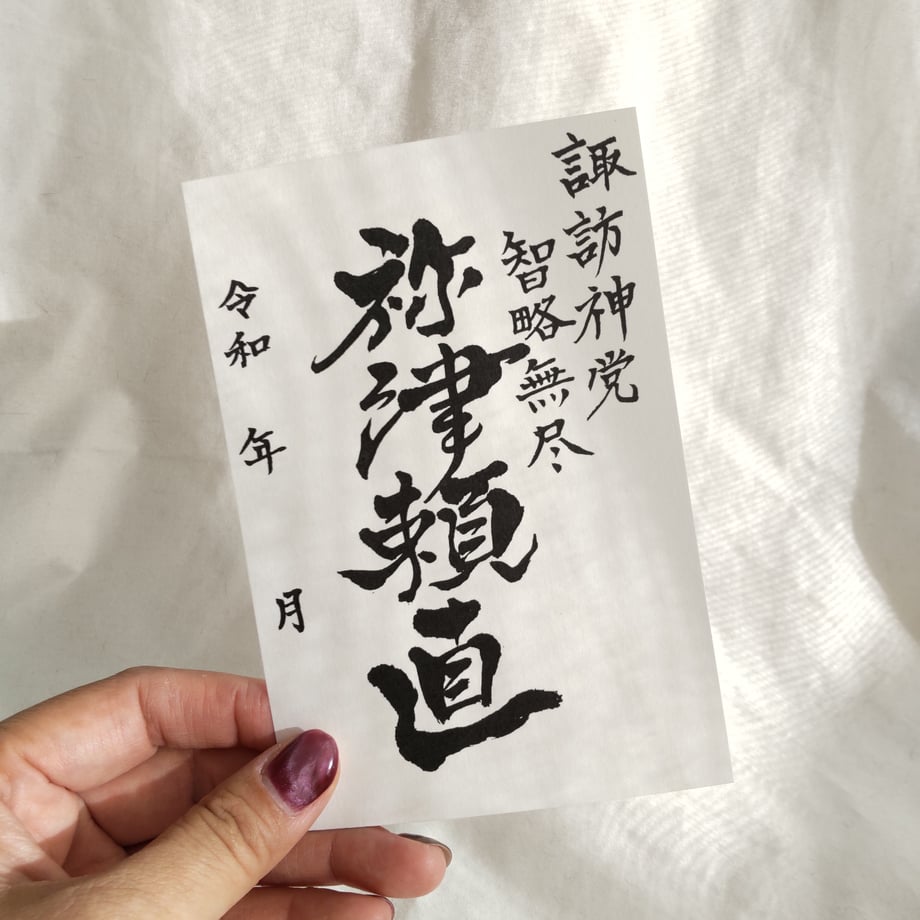 諏訪神党
智略無尽
祢津頼直
令和 年 月